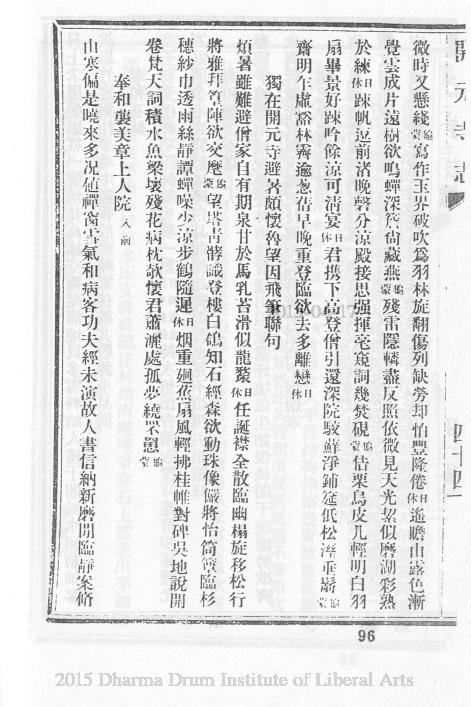 開元寺志
四十四
微時又懸綫龜蒙寫作玉界破吹為羽林旋翻傷列缺勞却怕豐隆倦日休遙瞻山露色漸
覺雲成片遠樹欲鳴蟬深簷尚藏燕龜蒙殘雷隱轔盡反照依微見天光絜似磨湖彩熟
於練日休疎帆逗前渚晚磬分涼殿接思強揮毫窺詞幾焚硯龜蒙佶栗烏皮几輕明白羽
扇畢景好疎吟餘涼可清宴日休君携下高登僧引還深院駁蘚淨鋪筵低松濕垂鬋龜蒙
齋明乍虛豁林霽逾葱蒨早晚重登臨欲去多離戀日休
獨在開元寺避暑頗懷魯望因飛筆聯句
煩暑雖難避僧家自有期泉甘於馬乳苔滑似龍漦日休任誕襟全散臨幽榻旋移松行
將雅拜篁陣欲交麾龜蒙望塔青髇識登樓白鴿知石經森欲動珠像儼將怡筒簟臨杉
穗紗巾透雨絲靜譚蟬噪少涼步鶴隨遲日休烟重迴蕉扇風輕拂桂帷對碑吳地說開
卷梵天詞積水魚梁壞殘花病枕欹懷君蕭灑處孤夢繞罘罳龜蒙
奉和襲美章上人院 入前
山寒偏是曉來多況值禪窗雪氣和病客功夫經未演故人書信納新磨閒臨靜案脩
96
2015 Dharma Drum Institute of Liberal Arts